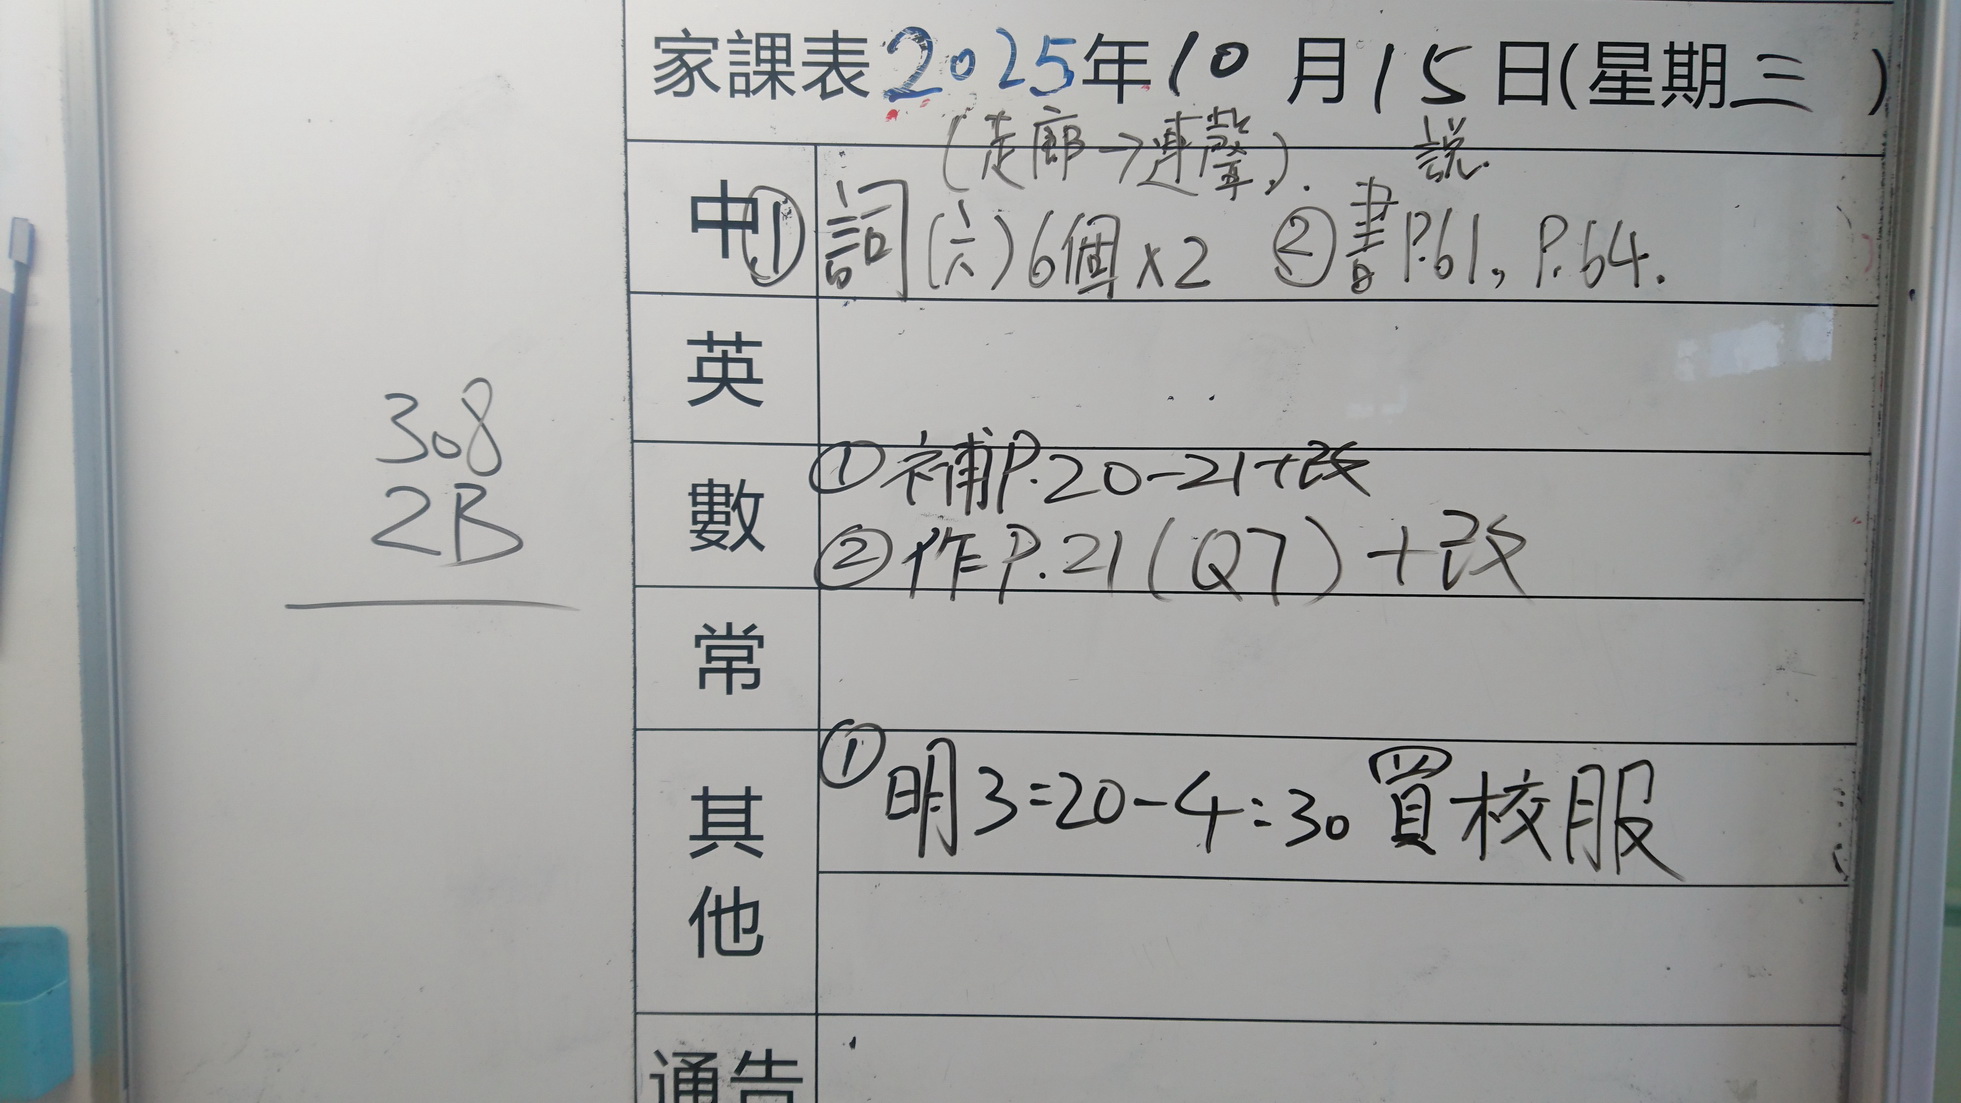 家課表2025年10月15日(星期三)
(走廊→連聲). 說.
中 ①詞(六)6個x2 ②書P.61, P.64.
英
308
2B
數 ①補P.20-21+改
②作P.21(Q7)+改
常
其他 ①明3:20-4:30買校服
通告